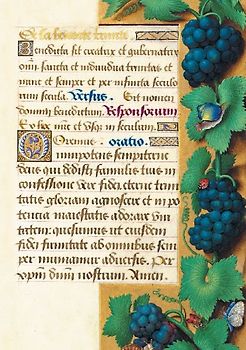 De la benoiste trinite.
Benedicta sit creatrix et gubernatrix
omniũ sancta et individua trinitas et
nunc et semper et per infinita seculorũ
secula. Versus. Et nomen
domini benedictum. Responsorium
Ex hoc nunc et usq in seculum.
Oremus. oratio.
Omnipotens sempiterne
deus qui dedisti famulis tuis in
confessione vere fidei eterne trini
tatis gloriam agnoscere et in po
tencia maiestatis adorare uni
tatem: quesumus ut eiusdem
fidei firmitate ab omnibus sem
per muniamur adversis. Per
xp̃m dñm nostrum. Amen.